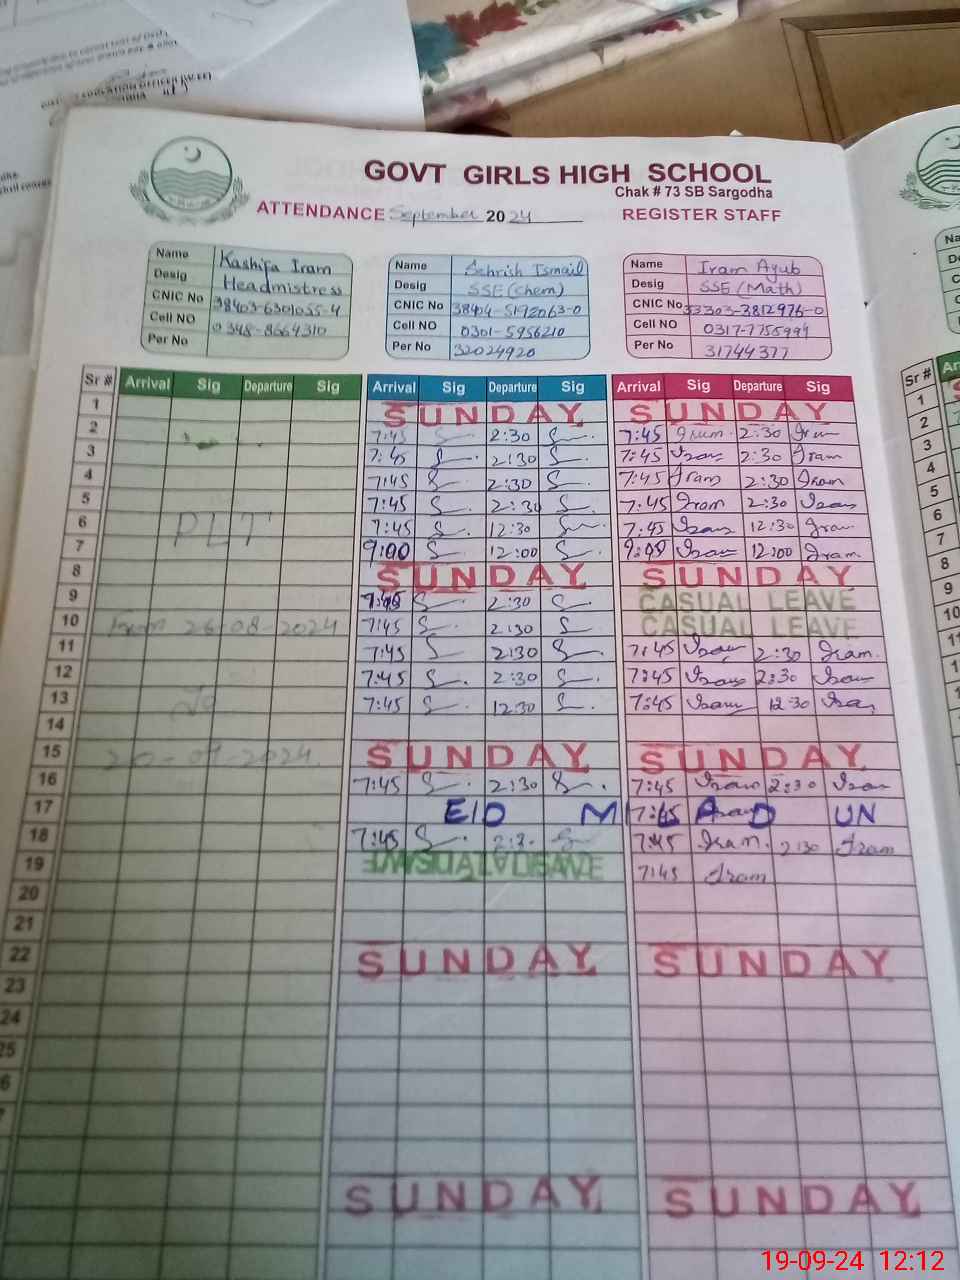 GOVT GIRLS HIGH SCHOOL
Chak # 73 SB Sargodha
ATTENDANCE September 2024 REGISTER STAFF
Name Kashifa Iram
Desig Headmistress
CNIC No 38403-6301055-4
Cell NO 0348-8664310
Per No
Name Sehrish Ismail
Desig SSE (Chem)
CNIC No 38404-5192063-0
Cell NO 0301-5956210
Per No 32024920
Name Iram Ayub
Desig SSE (Math)
CNIC No 33303-3812976-0
Cell NO 0317-7756994
Per No 31744377
Sr # Arrival Sig Departure Sig Arrival Sig Departure Sig Arrival Sig Departure Sig
1 SUNDAY SUNDAY
2 7:45 2:30 7:45 Iram 2:30 Iram
3 7:45 2:30 7:45 Iram 2:30 Iram
4 7:45 2:30 7:45 Iram 2:30 Iram
5 7:45 2:30 7:45 Iram 2:30 Iram
6 PLT 7:45 12:30 7:45 Iram 12:30 Iram
7 9:00 12:00 9:00 Iram 12:00 Iram
8 SUNDAY SUNDAY
9 7:45 2:30 CASUAL LEAVE
10 from 26-08-2024 7:45 2:30 CASUAL LEAVE
11 7:45 2:30 7:45 Iram 2:30 Iram
12 7:45 2:30 7:45 Iram 2:30 Iram
13 to 7:45 12:30 7:45 Iram 12:30 Iram
14
15 20-09-2024 SUNDAY SUNDAY
16 7:45 2:30 7:45 Iram 2:30 Iram
17 EID MILAD UN 7:45
18 7:45 2:30 7:45 Iram 2:30 Iram
19 7:45 Iram
20
21
22 SUNDAY SUNDAY
23
24
25
SUNDAY SUNDAY
19-09-24 12:12